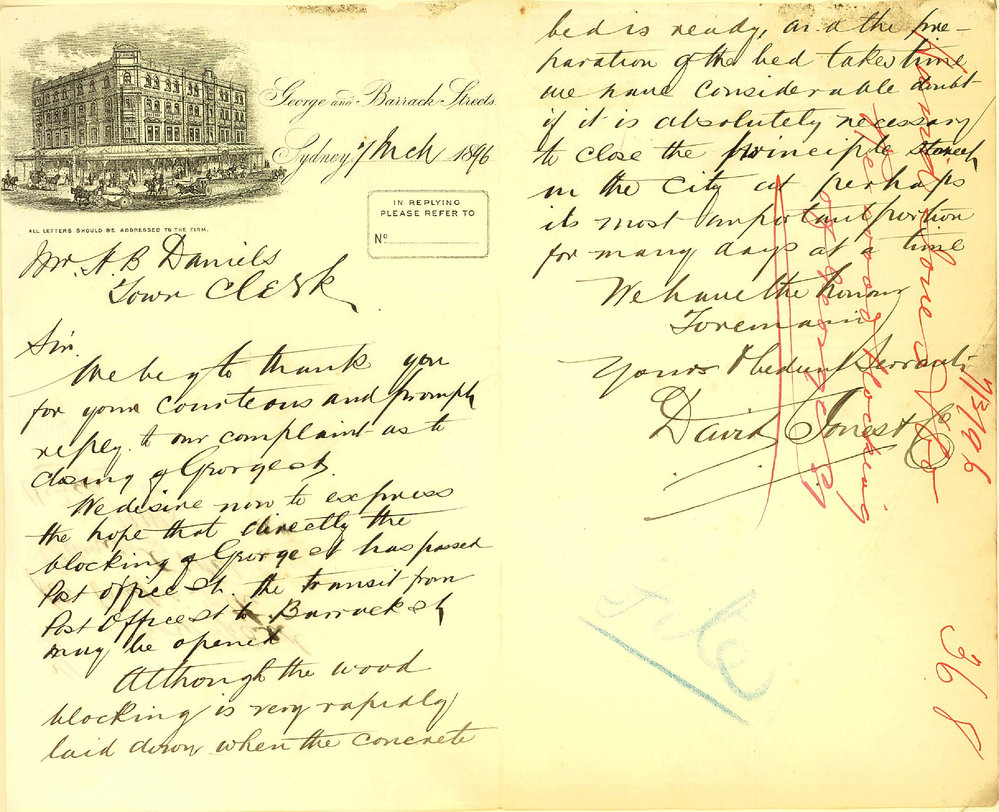 George and Barrack Streets.
Sydney, 7 Mch 1896
IN REPLYING
PLEASE REFER TO
No.
ALL LETTERS SHOULD BE ADDRESSED TO THE FIRM.
Mr. A B Daniels
Town Clerk
Sir.
We beg to thank you
for your courteous and prompt
reply to our complaint as to
closing of George st.
We desire now to express
the hope that directly the
blocking of George st has passed
Post office St. the transit from
Post Office st to Barrack st
may be opened
Although the wood
blocking is very rapidly
laid down when the concrete
bed is ready, and the pre-
paration of the bed takes time
we have considerable doubt
if it is absolutely necessary
to close the principle street
in the city at perhaps
its most important portion
for many days at a time
We have the honour
To remain
Yours Obedient Servants
David Jones & Co
David Jones & Co
re wood blocking
of George St
7/3/96
368